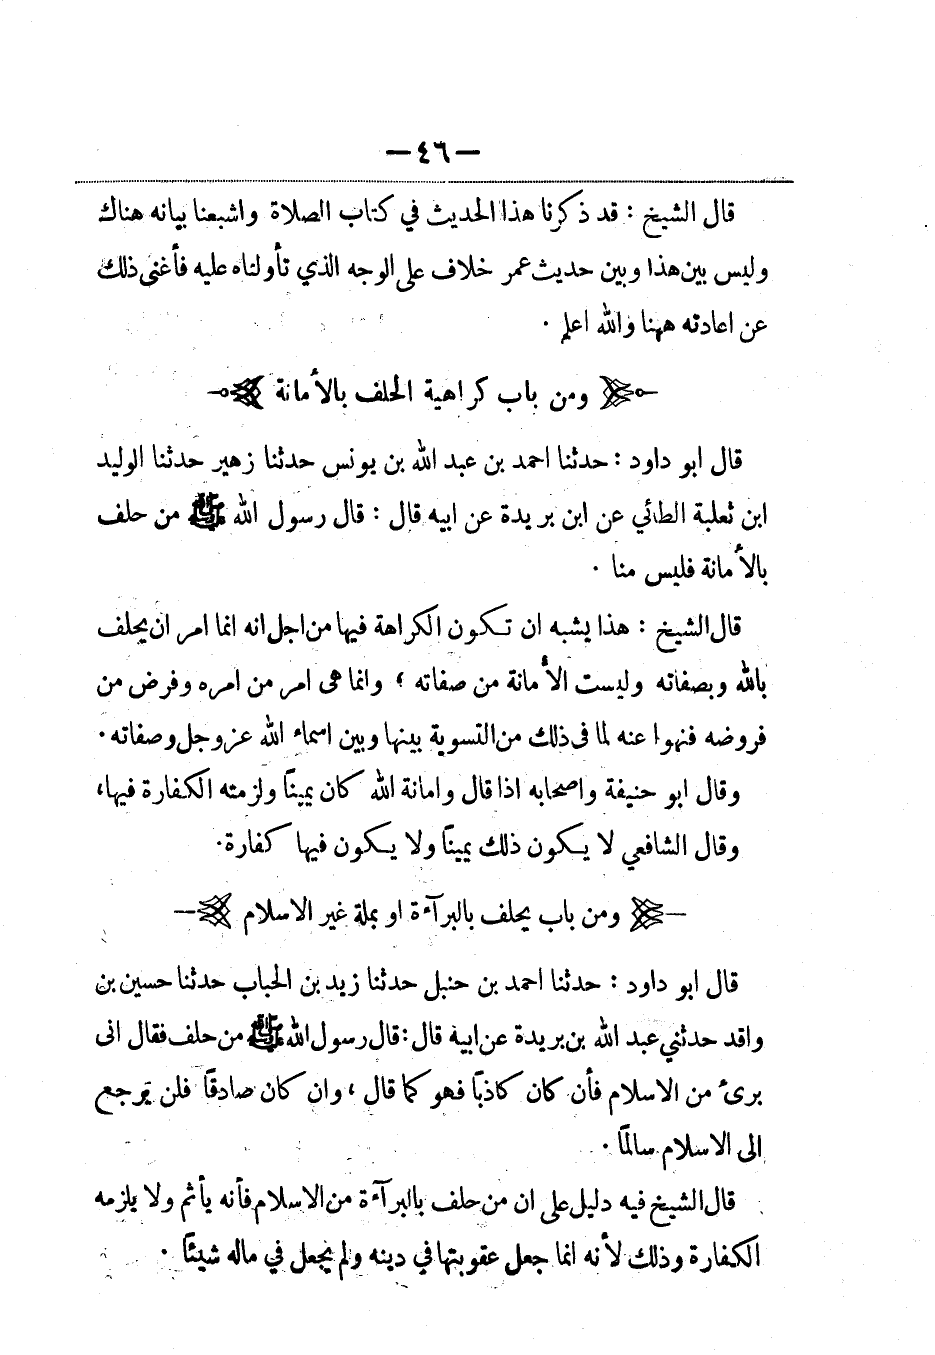 — ٤٦ —
قال الشيخ : قد ذكرنا هذا الحديث في كتاب الصلاة واشبعنا بيانه هناك
وليس بين هذا وبين حديث عمر خلاف على الوجه الذي تأولناه عليه فأغنى ذلك
عن اعادته ههنا والله اعلم .
ومن باب كراهية الحلف بالأمانة
قال ابو داود : حدثنا احمد بن عبد الله بن يونس حدثنا زهير حدثنا الوليد
ابن ثعلبة الطائي عن ابن بريدة عن ابيه قال : قال رسول الله ﷺ من حلف
بالأمانة فليس منا .
قال الشيخ : هذا يشبه ان تكون الكراهة فيها من اجل انه انما امر ان يحلف
بالله وبصفاته وليست الأمانة من صفاته ، وانما هى امر من امره وفرض من
فروضه فنهوا عنه لما فى ذلك من التسوية بينها وبين اسماء الله عز وجل وصفاته .
وقال ابو حنيفة واصحابه اذا قال وامانة الله كان يميناً ولزمته الكفارة فيها ،
وقال الشافعي لا يكون ذلك يميناً ولا يكون فيها كفارة .
ومن باب يحلف بالبرآءة او بملة غير الاسلام
قال ابو داود : حدثنا احمد بن حنبل حدثنا زيد بن الحباب حدثنا حسين بن
واقد حدثني عبد الله بن بريدة عن ابيه قال : قال رسول الله ﷺ من حلف فقال انى
برىء من الاسلام فأن كان كاذباً فهو كما قال ، وان كان صادقاً فلن يرجع
الى الاسلام سالماً .
قال الشيخ فيه دليل على ان من حلف بالبرآءة من الاسلام فأنه يأثم ولا يلزمه
الكفارة وذلك لأنه انما جعل عقوبتها في دينه ولم يجعل في ماله شيئاً .